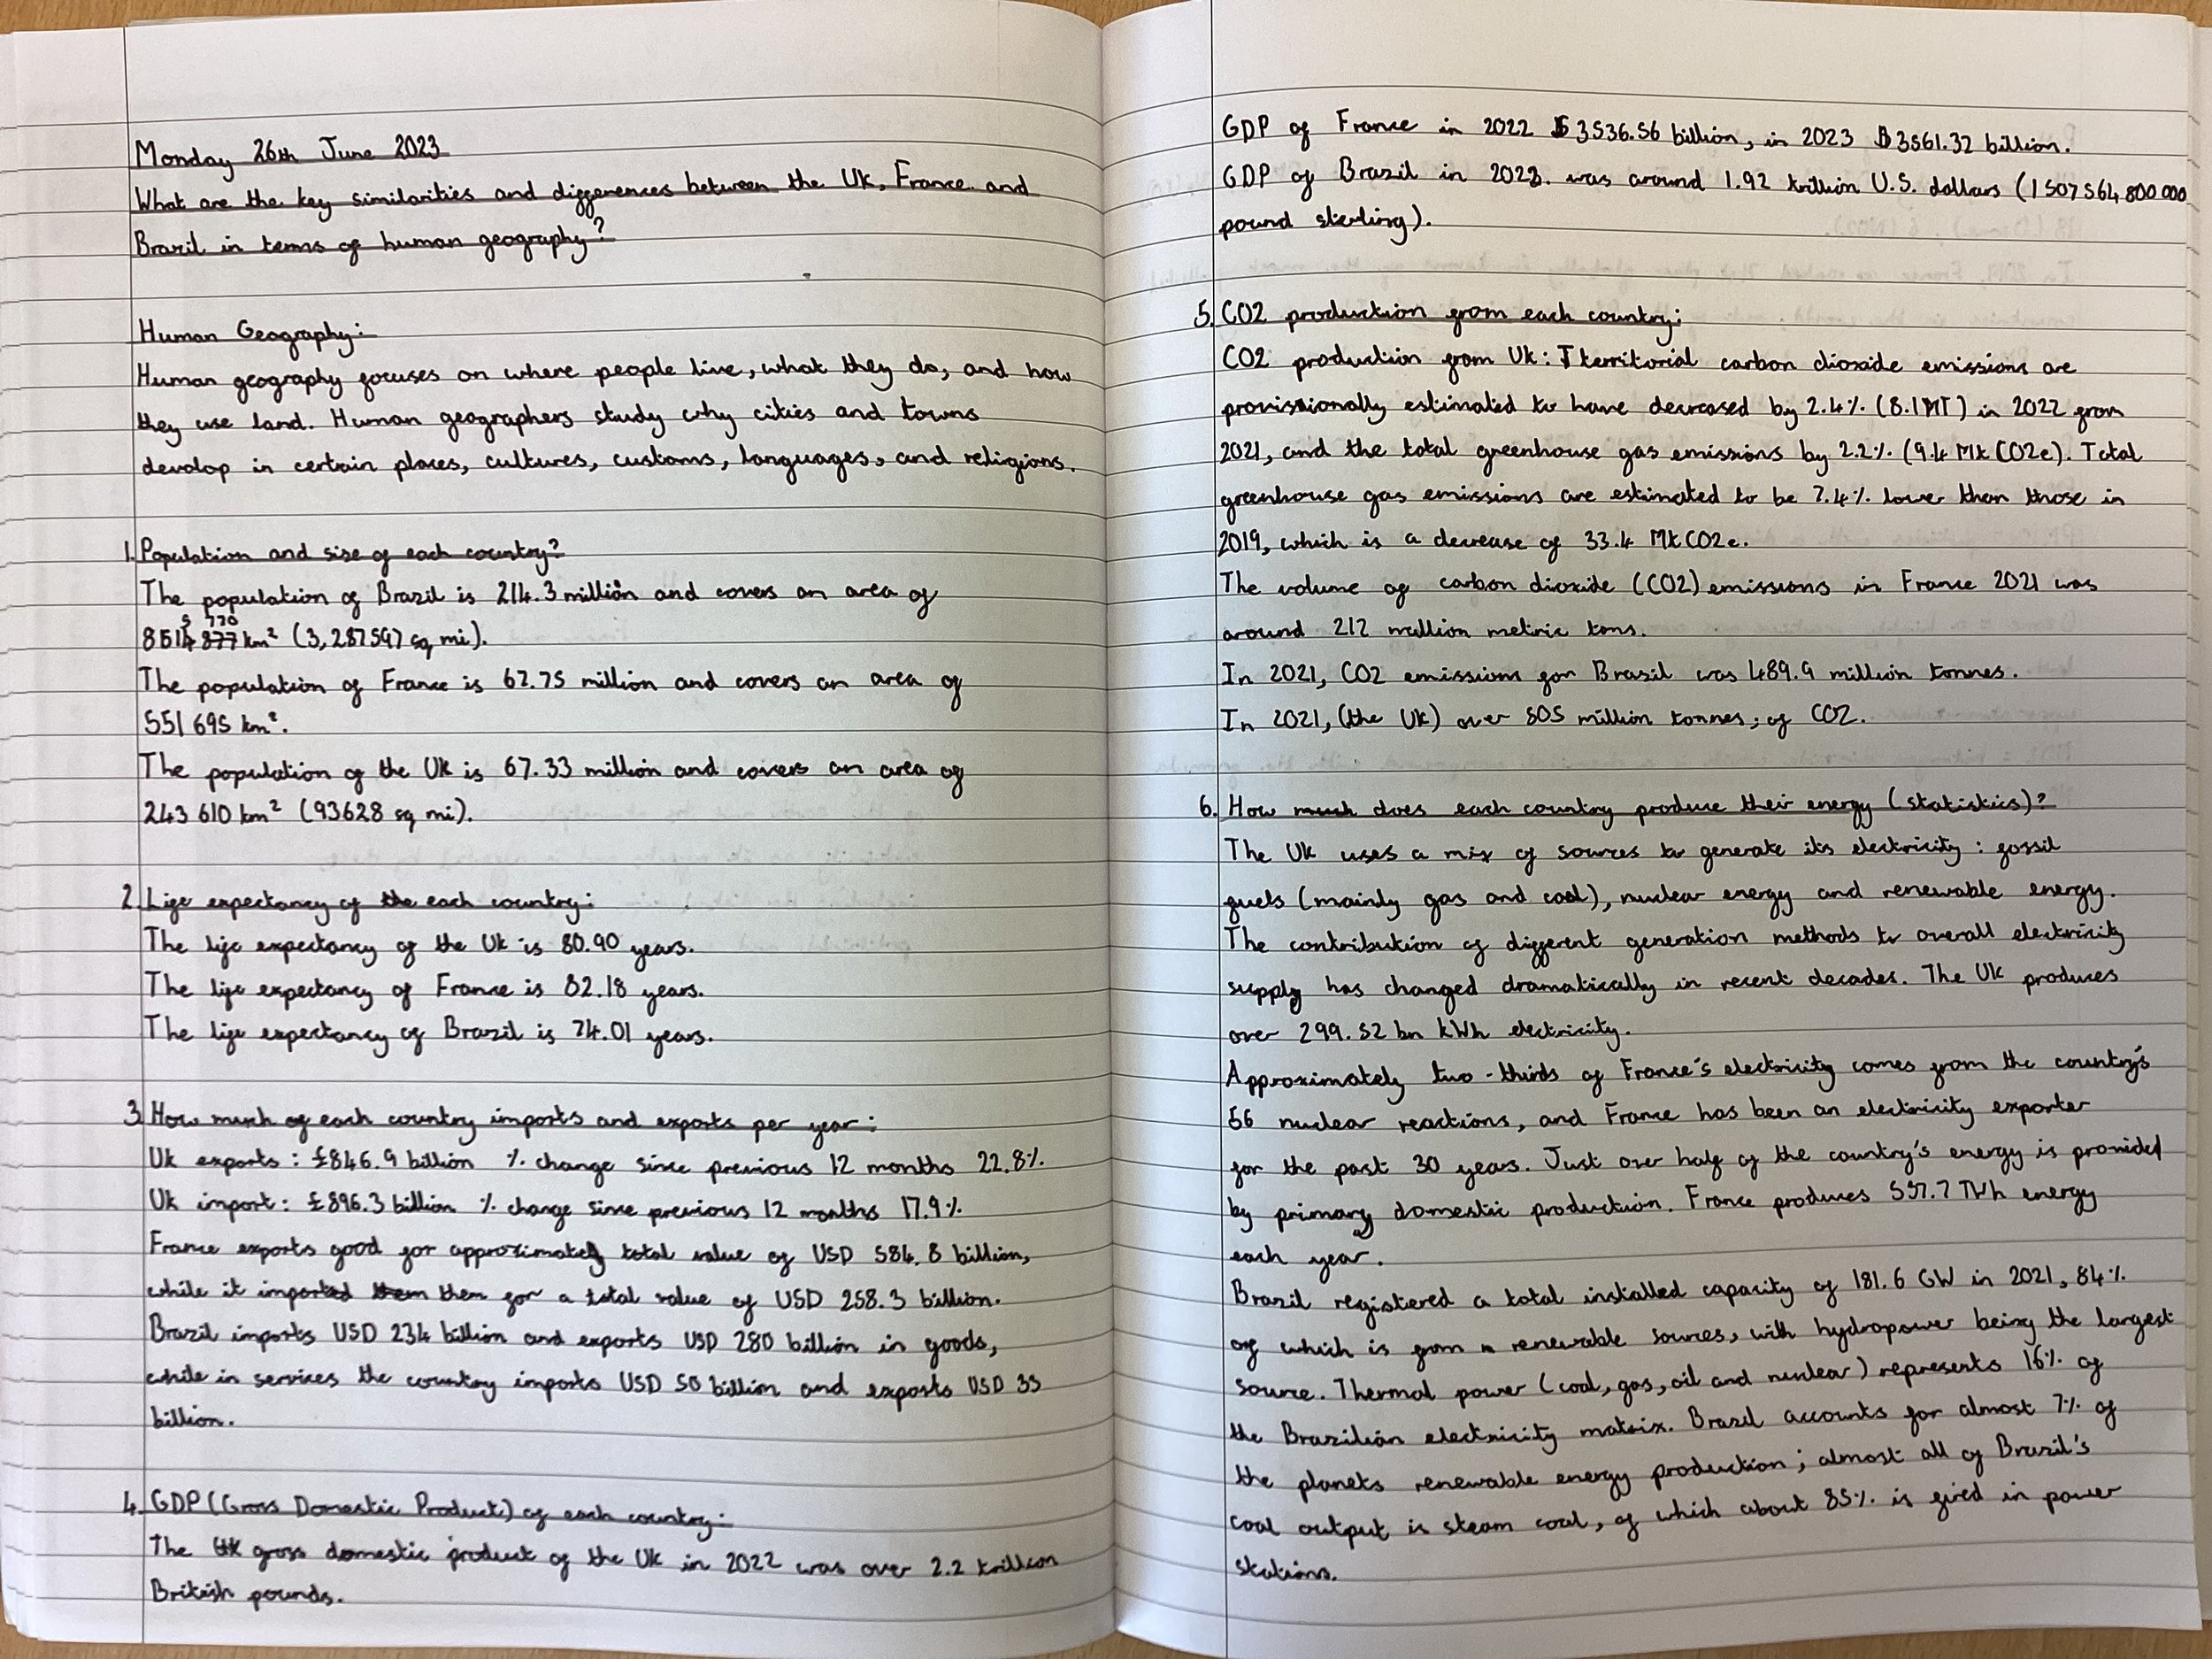 Monday 26th June 2023
What are the key similarities and differences between the UK, France and
Brazil in terms of human geography?
Human Geography:
Human geography focuses on where people live, what they do, and how
they use land. Human geographers study why cities and towns
develop in certain places, cultures, customs, languages, and religions.
1. Population and size of each country?
The population of Brazil is 214.3 million and covers an area of
8515 770 km² (3,287597 sq mi).
The population of France is 67.75 million and covers an area of
551 695 km².
The population of the UK is 67.33 million and covers an area of
243 610 km² (93628 sq mi).
2. Life expectancy of the each country:
The life expectancy of the UK is 80.90 years.
The life expectancy of France is 82.18 years.
The life expectancy of Brazil is 74.01 years.
3. How much of each country imports and exports per year:
UK exports: £846.9 billion % change since previous 12 months 22.8%
UK import: £896.3 billion % change since previous 12 months 17.9%
France exports good for approximately total value of USD 584.8 billion,
while it imported them for a total value of USD 258.3 billion.
Brazil imports USD 234 billion and exports USD 280 billion in goods,
while in services the country imports USD 50 billion and exports USD 33
billion.
4. GDP (Gross Domestic Product) of each country:
The gross domestic product of the UK in 2022 was over 2.2 trillion
British pounds.
GDP of France in 2022 $3536.56 billion, in 2023 $3561.32 billion.
GDP of Brazil in 2022. was around 1.92 trillion U.S. dollars (1 507 564 800 000
pound sterling).
5. CO2 production from each country:
CO2 production from UK: Territorial carbon dioxide emissions are
provisionally estimated to have decreased by 2.4% (8.1MT) in 2022 from
2021, and the total greenhouse gas emissions by 2.2% (9.4 Mt CO2e). Total
greenhouse gas emissions are estimated to be 7.4% lower than those in
2019, which is a decrease of 33.4 MtCO2e.
The volume of carbon dioxide (CO2) emissions in France 2021 was
around 212 million metric tons.
In 2021, CO2 emissions for Brazil was 489.9 million tonnes.
In 2021, (the UK) over 505 million tonnes; of CO2.
6. How much does each country produce their energy (statistics)?
The UK uses a mix of sources to generate its electricity: fossil
fuels (mainly gas and coal), nuclear energy and renewable energy.
The contribution of different generation methods to overall electricity
supply has changed dramatically in recent decades. The UK produces
over 299.52 bn kWh electricity.
Approximately two-thirds of France's electricity comes from the country's
56 nuclear reactions, and France has been an electricity exporter
for the past 30 years. Just over half of the country's energy is provided
by primary domestic production. France produces 537.7 TWh energy
each year.
Brazil registered a total installed capacity of 181.6 GW in 2021, 84%
of which is from renewable sources, with hydropower being the largest
source. Thermal power (coal, gas, oil and nuclear) represents 16% of
the Brazilian electricity matrix. Brazil accounts for almost 7% of
the planets renewable energy production; almost all of Brazil's
coal output is steam coal, of which about 85% is fired in power
stations.